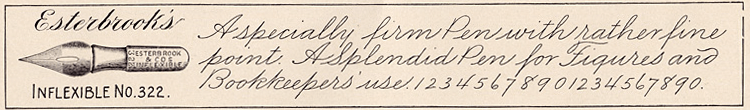 Esterbrook's
ESTERBROOK
& CO'S
INFLEXIBLE
INFLEXIBLE No. 322.
A specially firm Pen with rather fine
point. A splendid Pen for Figures and
Bookkeepers' use. 1234567890 1234567890.